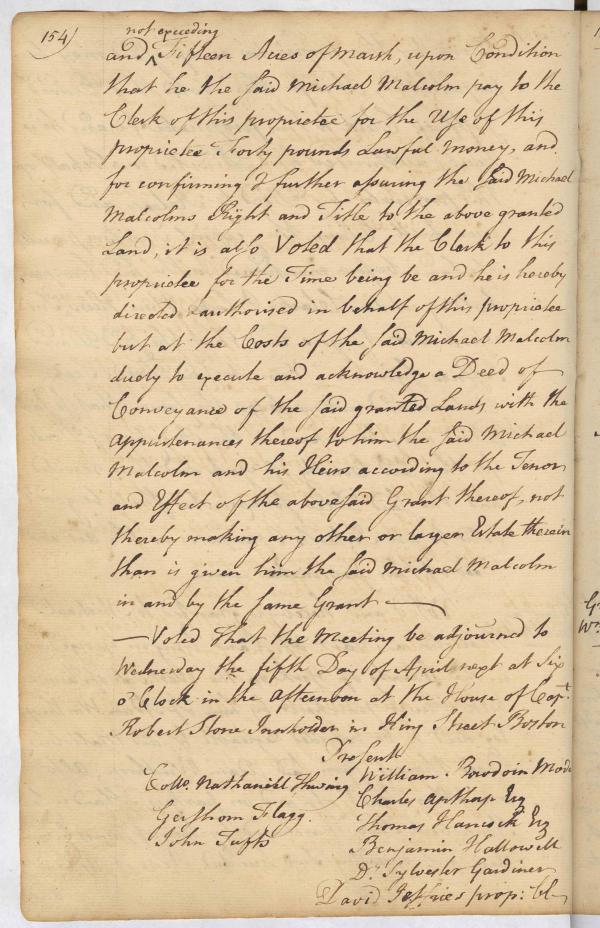 154)
not exceeding
and ^ Fifteen Acres of Marsh, upon Condition
that he the said Michael Malcolm pay to the
Clerk of this proprietee for the Use of this
proprietee Forty pounds Lawful Money, and
for confirming & further assuring the said Michael
Malcolms Right and Title to the above granted
Land, it is also Voted that the Clerk to this
proprietee for the Time being be and he is hereby
directed & authorised in behalf of this proprietee
but at the Costs of the said Michael Malcolm
duely to execute and acknowledge a Deed of
Conveyance of the said granted Lands with the
Appurtenances thereof to him the said Michael
Malcolm and his Heirs according to the Tenor
and Effect of the abovesaid Grant thereof, not
thereby making any other or larger Estate therein
than is given him the said Michael Malcolm
in and by the same Grant —
— Voted That the Meeting be adjourned to
Wednesday the fifth Day of April next at Six
o'Clock in the afternoon at the House of Capt.
Robert Stone Innholder in King Street Boston
Present
William Bowdoin Mode
Collo. Nathaniell Thwing
Charles Apthorp Esq
Gershom Flagg.
Thomas Hancock Esq
John Tufts
Benjamin Hallowell
Dr. Sylvester Gardiner
David Jeffries prop: Cl